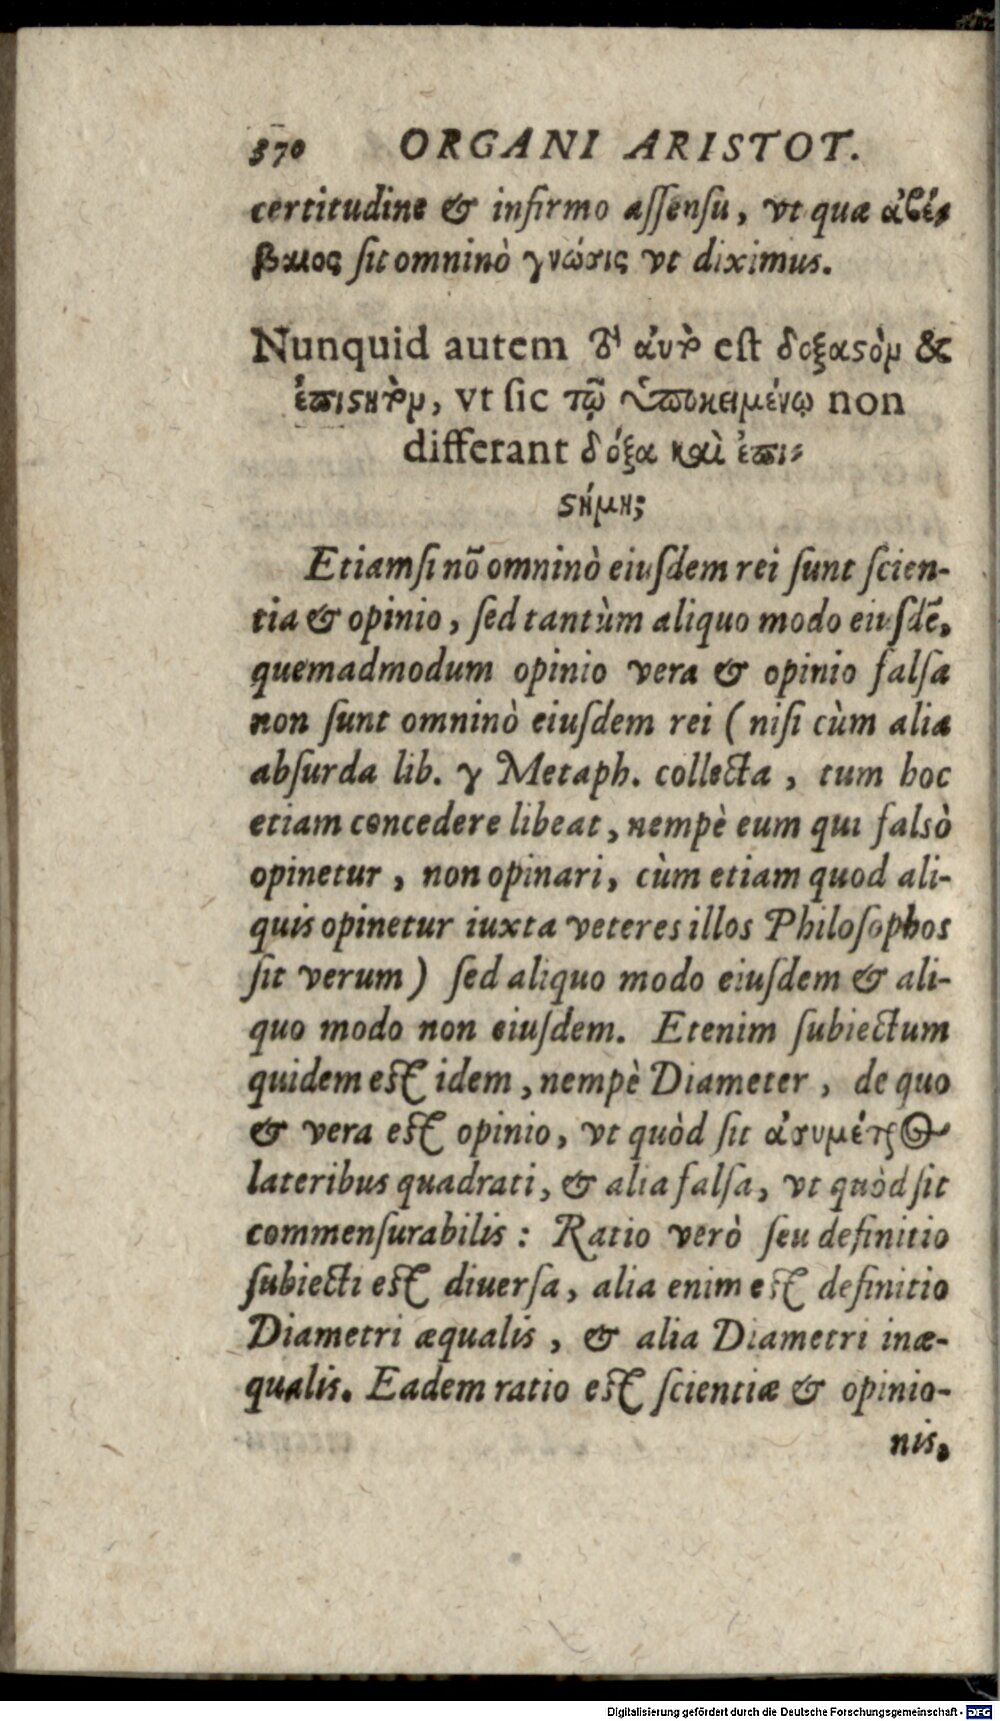 370 ORGANI ARISTOT.
certitudine & infirmo aſſenſu, vt quæ ἀβέ-
βαιος ſit omninò γνῶσις vt diximus.
Nunquid autem τὸ αὐτὸ eſt δοξαϛὸν &
ἐπιϛητὸν, vt ſic τῷ ὑποκειμένῳ non
differant δόξα καὶ ἐπι-
ϛήμη;
Etiamſi nõ omninò eiuſdem rei ſunt ſcien-
tia & opinio, ſed tantùm aliquo modo eiuſdẽ,
quemadmodum opinio vera & opinio falſa
non ſunt omninò eiuſdem rei (niſi cùm alia
abſurda lib. γ Metaph. collecta, tum hoc
etiam concedere libeat, nempè eum qui falsò
opinetur, non opinari, cùm etiam quod ali-
quis opinetur iuxta veteres illos Philoſophos
ſit verum) ſed aliquo modo eiuſdem & ali-
quo modo non eiuſdem. Etenim ſubiectum
quidem eſt idem, nempè Diameter, de quo
& vera eſt opinio, vt quòd ſit ἀσυμέτρος
lateribus quadrati, & alia falſa, vt quòd ſit
commenſurabilis: Ratio verò ſeu definitio
ſubiecti eſt diuerſa, alia enim eſt definitio
Diametri æqualis, & alia Diametri inæ-
qualis. Eadem ratio eſt ſcientiæ & opinio-
nis.
Digitalisierung gefördert durch die Deutsche Forschungsgemeinschaft - DFG